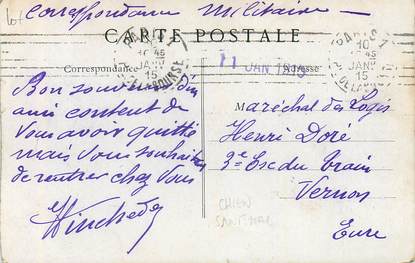 Correspondance Militaire
CARTE POSTALE
Correspondance
Adresse
11 JAN 1915
PARIS
10 45
JANV
15
PARIS
10 45
JANV
15
Bon souvenir d'un
ami content de
vous avoir quitté
mais vous souhaite
de rentrer chez vous
Maréchal des Logis
Henri Doré
3e Esc du train
Vernon
Eure
CHIEN
SANITAIRE